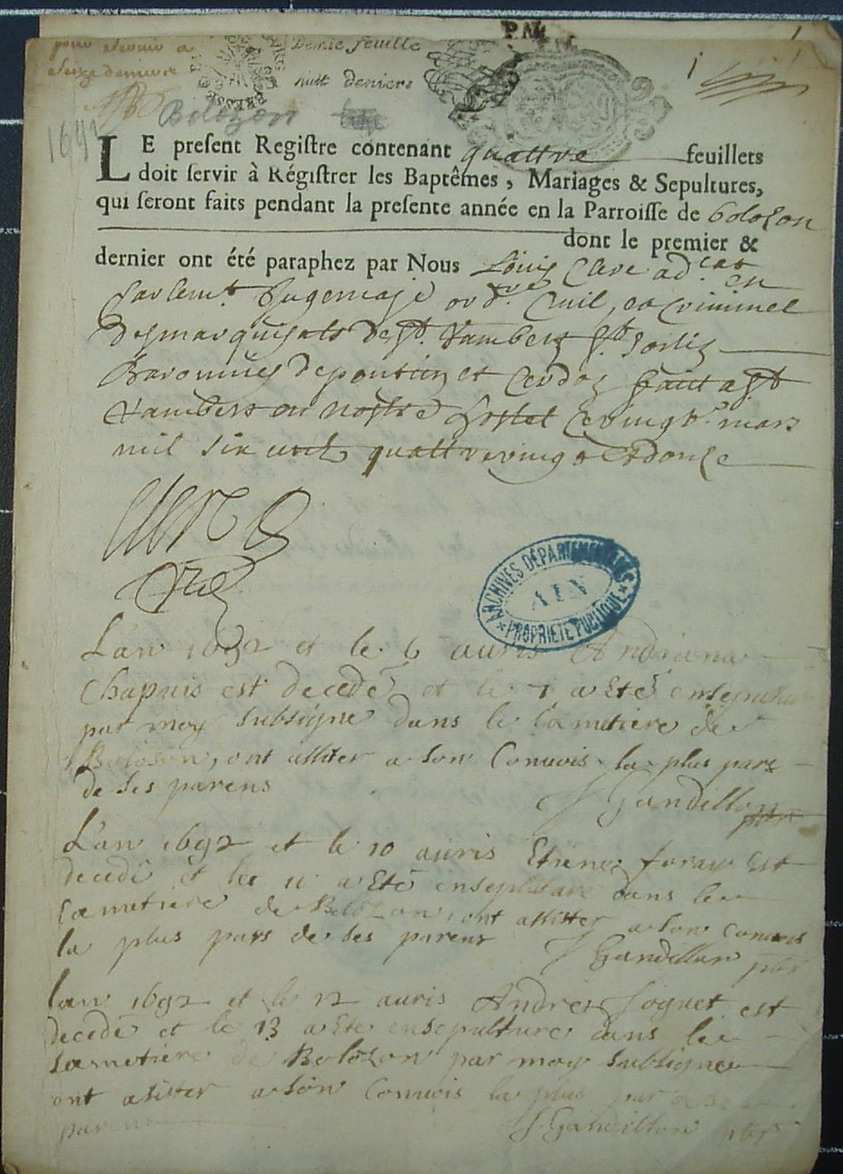 pour servir a
Demie feuille
huit deniers
P M
1
1692
Bolozon
LE present Registre contenant quattre feuillets
doit servir à Régistrer les Baptêmes, Mariages & Sepultures,
qui seront faits pendant la presente année en la Parroisse de bolozon
dont le premier &
dernier ont été paraphez par Nous Louis Clere ad.cat en
parlemt. Jugemaje ordre. Civil, et Criminel
des marquisats de St. Rambert St. Sorlin
Baronnies de poncin et Cerdon fait a St
Rambert en nostre hostel ce vingt. mars
mil six cent quattrevingt et douze
ARCHIVES DÉPARTEMENTALES
AIN
PROPRIÉTÉ PUBLIQUE
L'an 1692 et le 6 auris Andriena
Chapuis est decedé et le 7 a Eté ensepulture
par moy subsigne dans le Cametiere de
Bolozon, ont assiter a son Convois la plus pars
de ses parens
J Gandillon pbr
L'an 1692 et le 10 auris Etiene foray est
decedé et le 11 a Eté ensepulturé dans le
Cametiere de Bolozon, ont assitter a son Convois
la plus pars de ses parens J Gandillon pbr
lan 1692 et le 12 auris Andrez Joguet est
decedé et le 13 a Eté ensepulture dans le
Sametiere de Bolozon par moy subsigne
ont asister a son Convois la plus par de se
parens
J Gandillon pbr